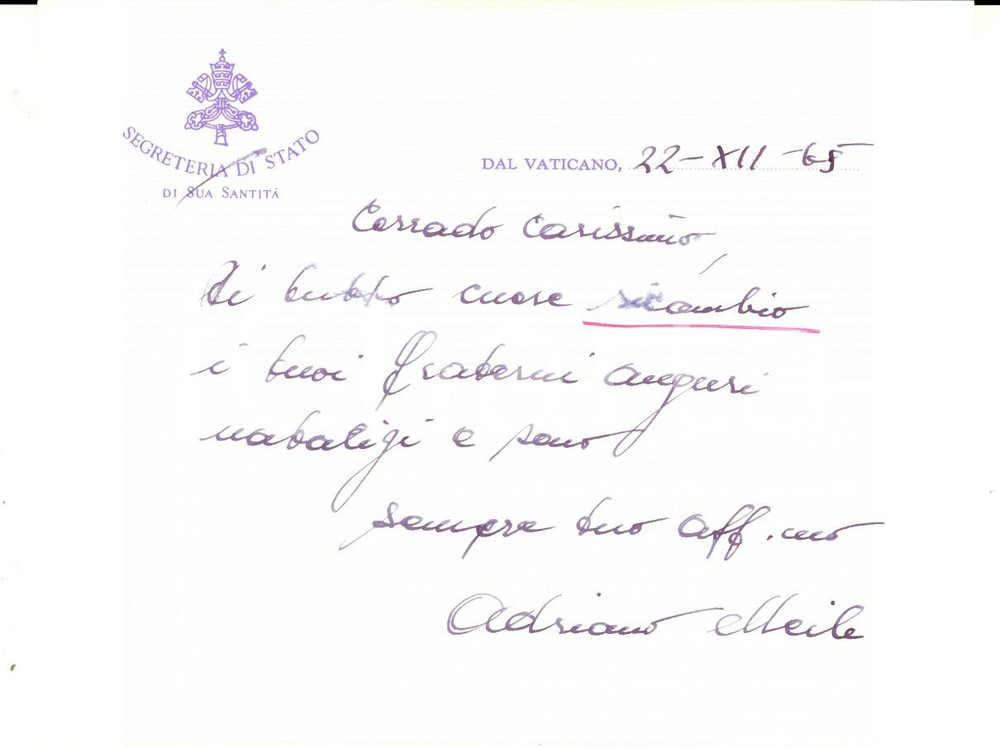 SEGRETERIA DI STATO
DI SUA SANTITÁ
DAL VATICANO, 22-XII-65
Corrado carissimo,
Di tutto cuore ricambio
i tuoi fraterni auguri
natalizi e sono
sempre tuo aff.mo
Adriano